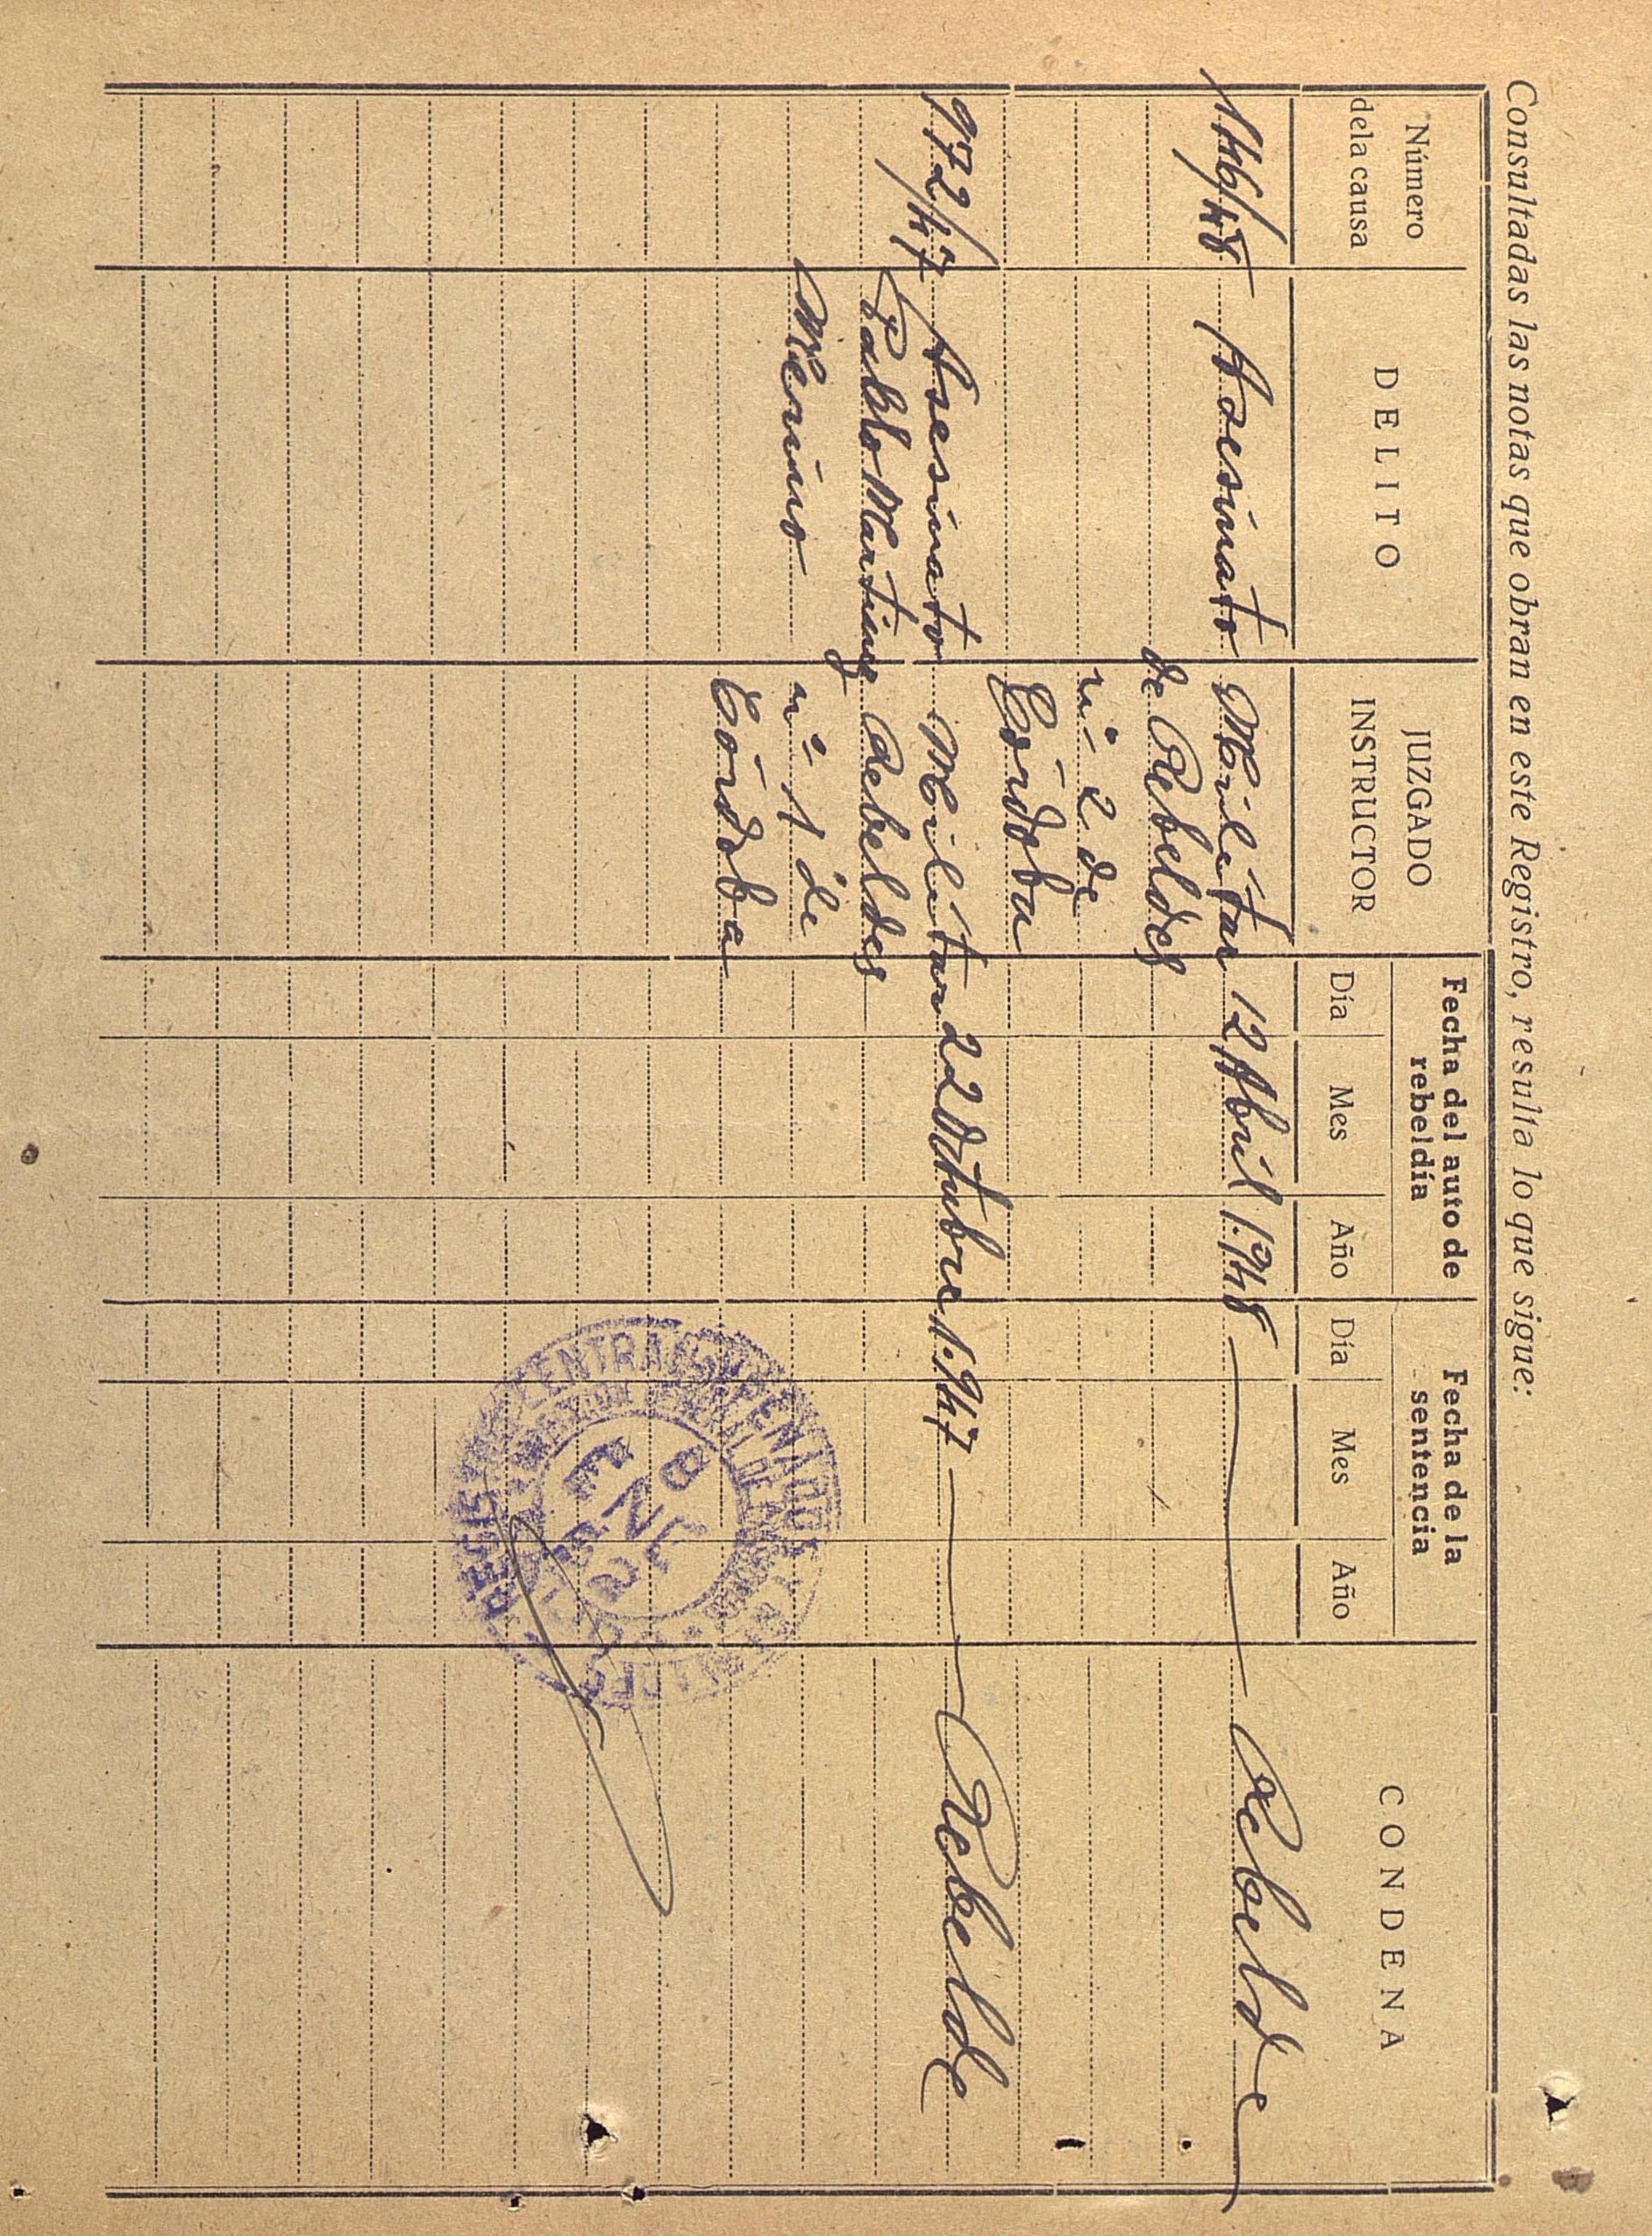 Consultadas las notas que obran en este Registro, resulta lo que sigue:
Número de la causa
DELITO
JUZGADO INSTRUCTOR
Fecha del auto de rebeldía
Fecha de la sentencia
CONDENA
Día Mes Año Día Mes Año
Asesinato Militar 12 Abril 1.948 Rebelde
de Rebeldes
nº 2 de
Córdoba
972/47 Asesinato Militar 22 Octubre 1.947 Rebelde
Pablo Martinez Rebeldes
Merino nº 1 de
Córdoba